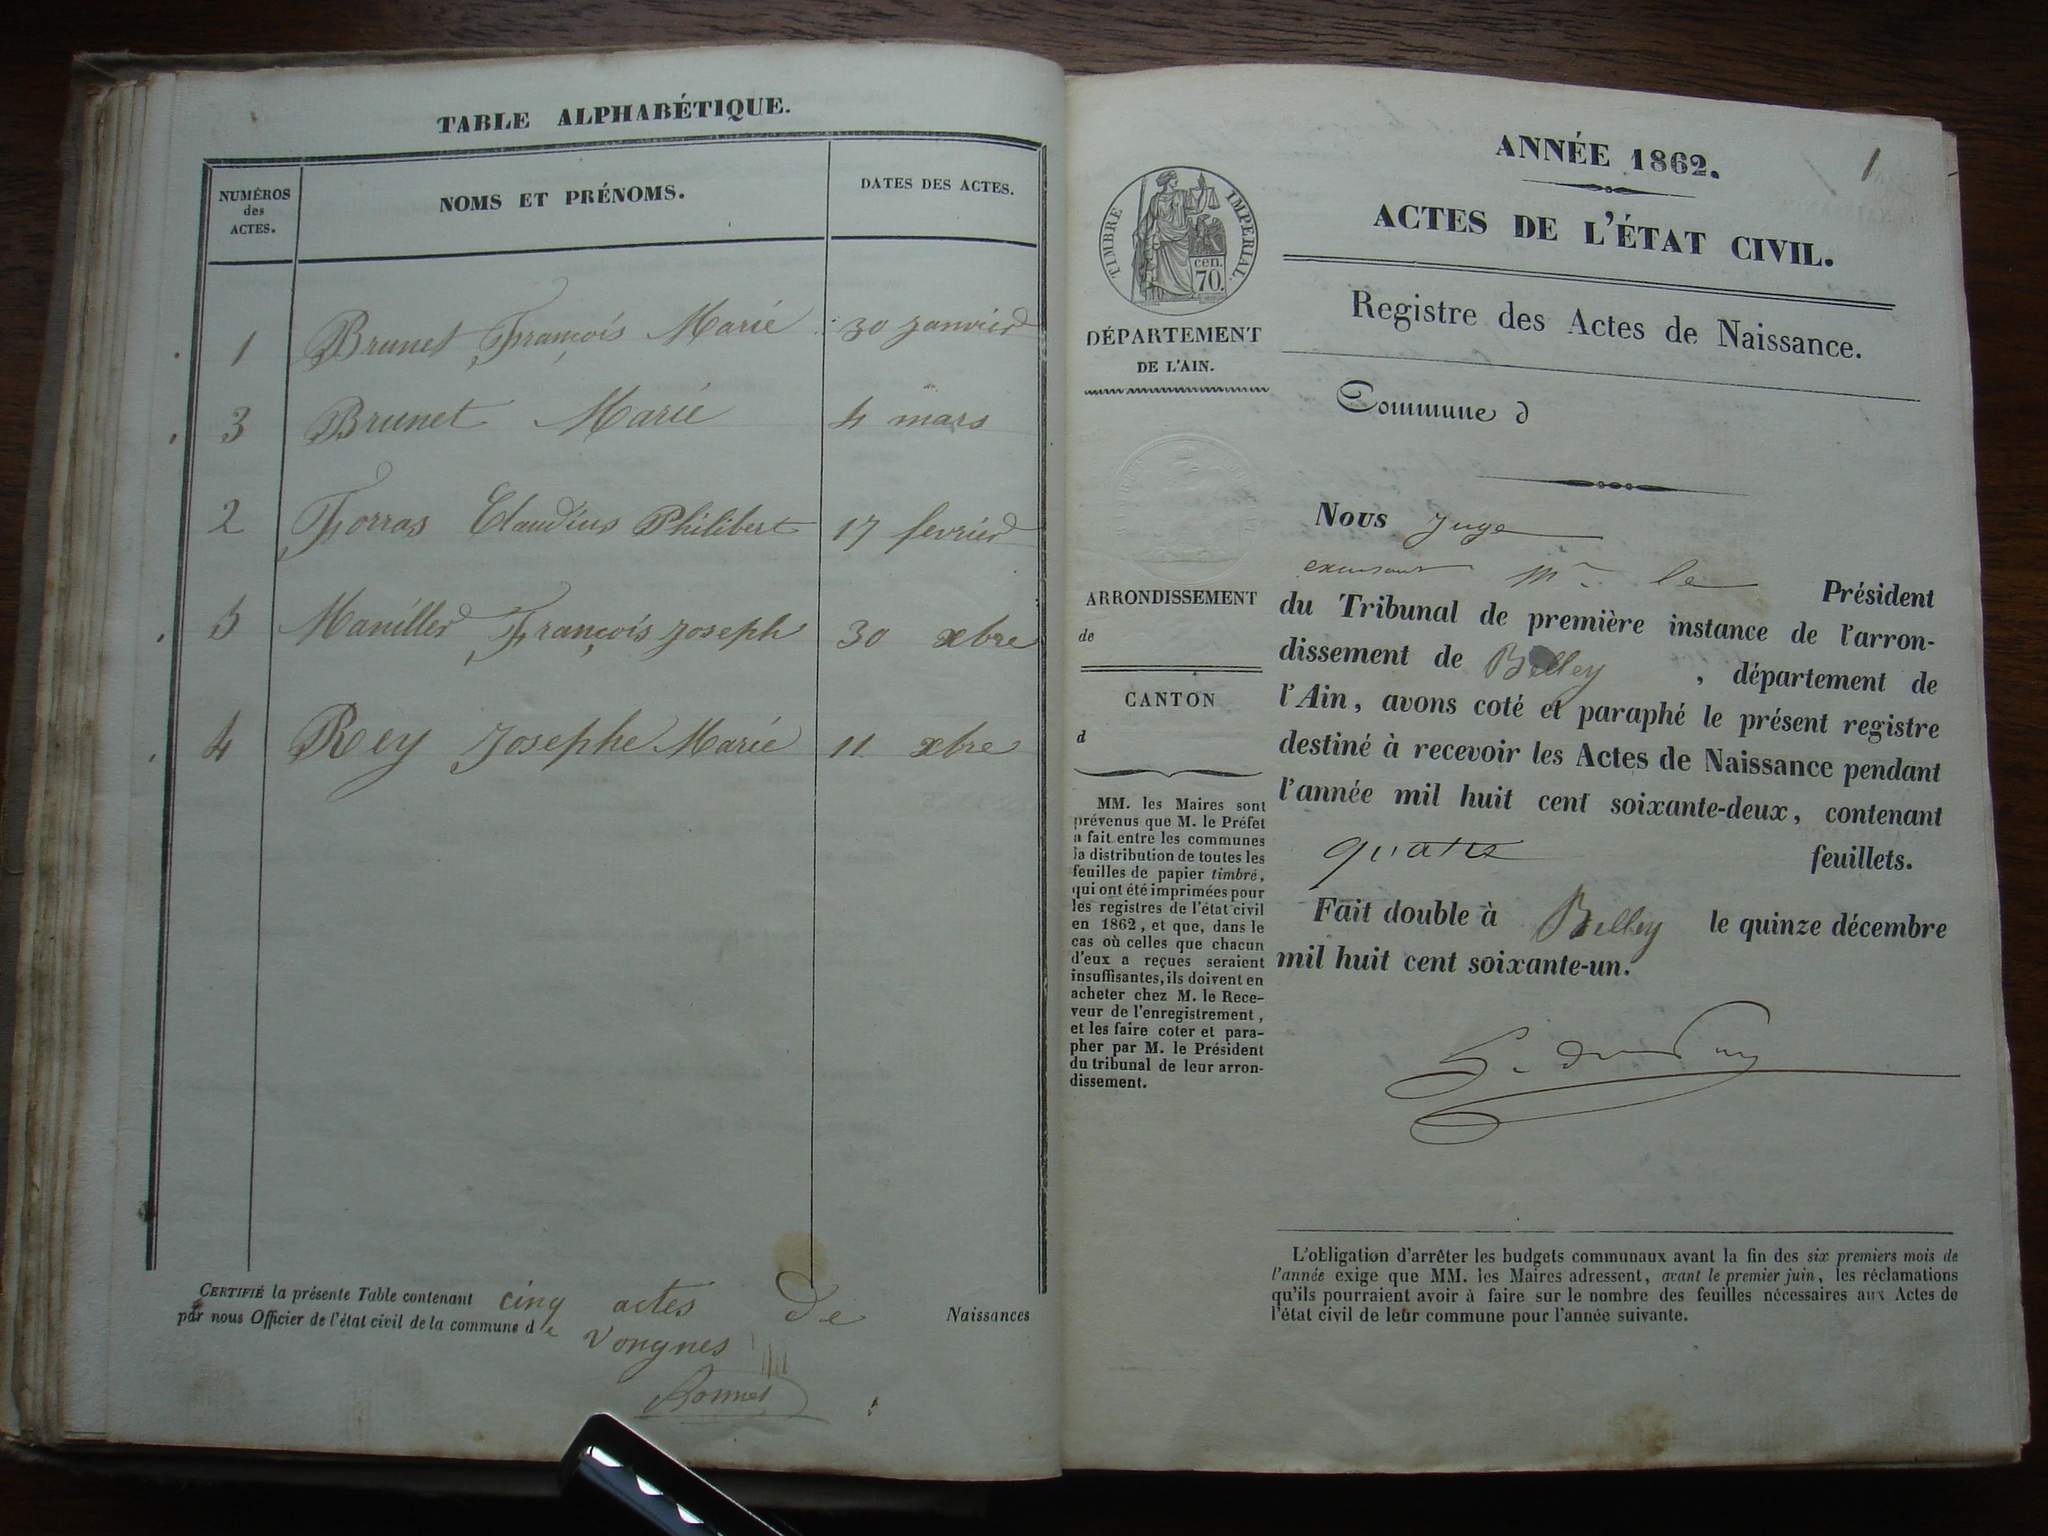 TABLE ALPHABÉTIQUE.
NUMÉROS des ACTES.
NOMS ET PRÉNOMS.
DATES DES ACTES.
1 Brunet François Marie 30 janvier
3 Brunet Marie 4 mars
2 Forras Claudius Philibert 17 fevrier
5 Maniller François Joseph 30 xbre
4 Rey Josephe Marie 11 xbre
CERTIFIÉ la présente Table contenant cinq actes de Naissances
par nous Officier de l'état civil de la commune de Vongnes
Bonnet
1
ANNÉE 1862.
ACTES DE L'ÉTAT CIVIL.
Registre des Actes de Naissance.
TIMBRE IMPÉRIAL.
cen.
70.
DÉPARTEMENT
DE L'AIN.
ARRONDISSEMENT
de
CANTON
d
MM. les Maires sont
prévenus que M. le Préfet
a fait entre les communes
la distribution de toutes les
feuilles de papier timbré,
qui ont été imprimées pour
les registres de l'état civil
en 1862, et que, dans le
cas où celles que chacun
d'eux a reçues seraient
insuffisantes, ils doivent en
acheter chez M. le Rece-
veur de l'enregistrement,
et les faire coter et para-
pher par M. le Président
du tribunal de leur arron-
dissement.
Commune d
Nous Juge
Mr le Président
du Tribunal de première instance de l'arron-
dissement de Belley, département de
l'Ain, avons coté et paraphé le présent registre
destiné à recevoir les Actes de Naissance pendant
l'année mil huit cent soixante-deux, contenant
quatre feuillets.
Fait double à Belley le quinze décembre
mil huit cent soixante-un.
L'obligation d'arrêter les budgets communaux avant la fin des six premiers mois de
l'année exige que MM. les Maires adressent, avant le premier juin, les réclamations
qu'ils pourraient avoir à faire sur le nombre des feuilles nécessaires aux Actes de
l'état civil de leur commune pour l'année suivante.